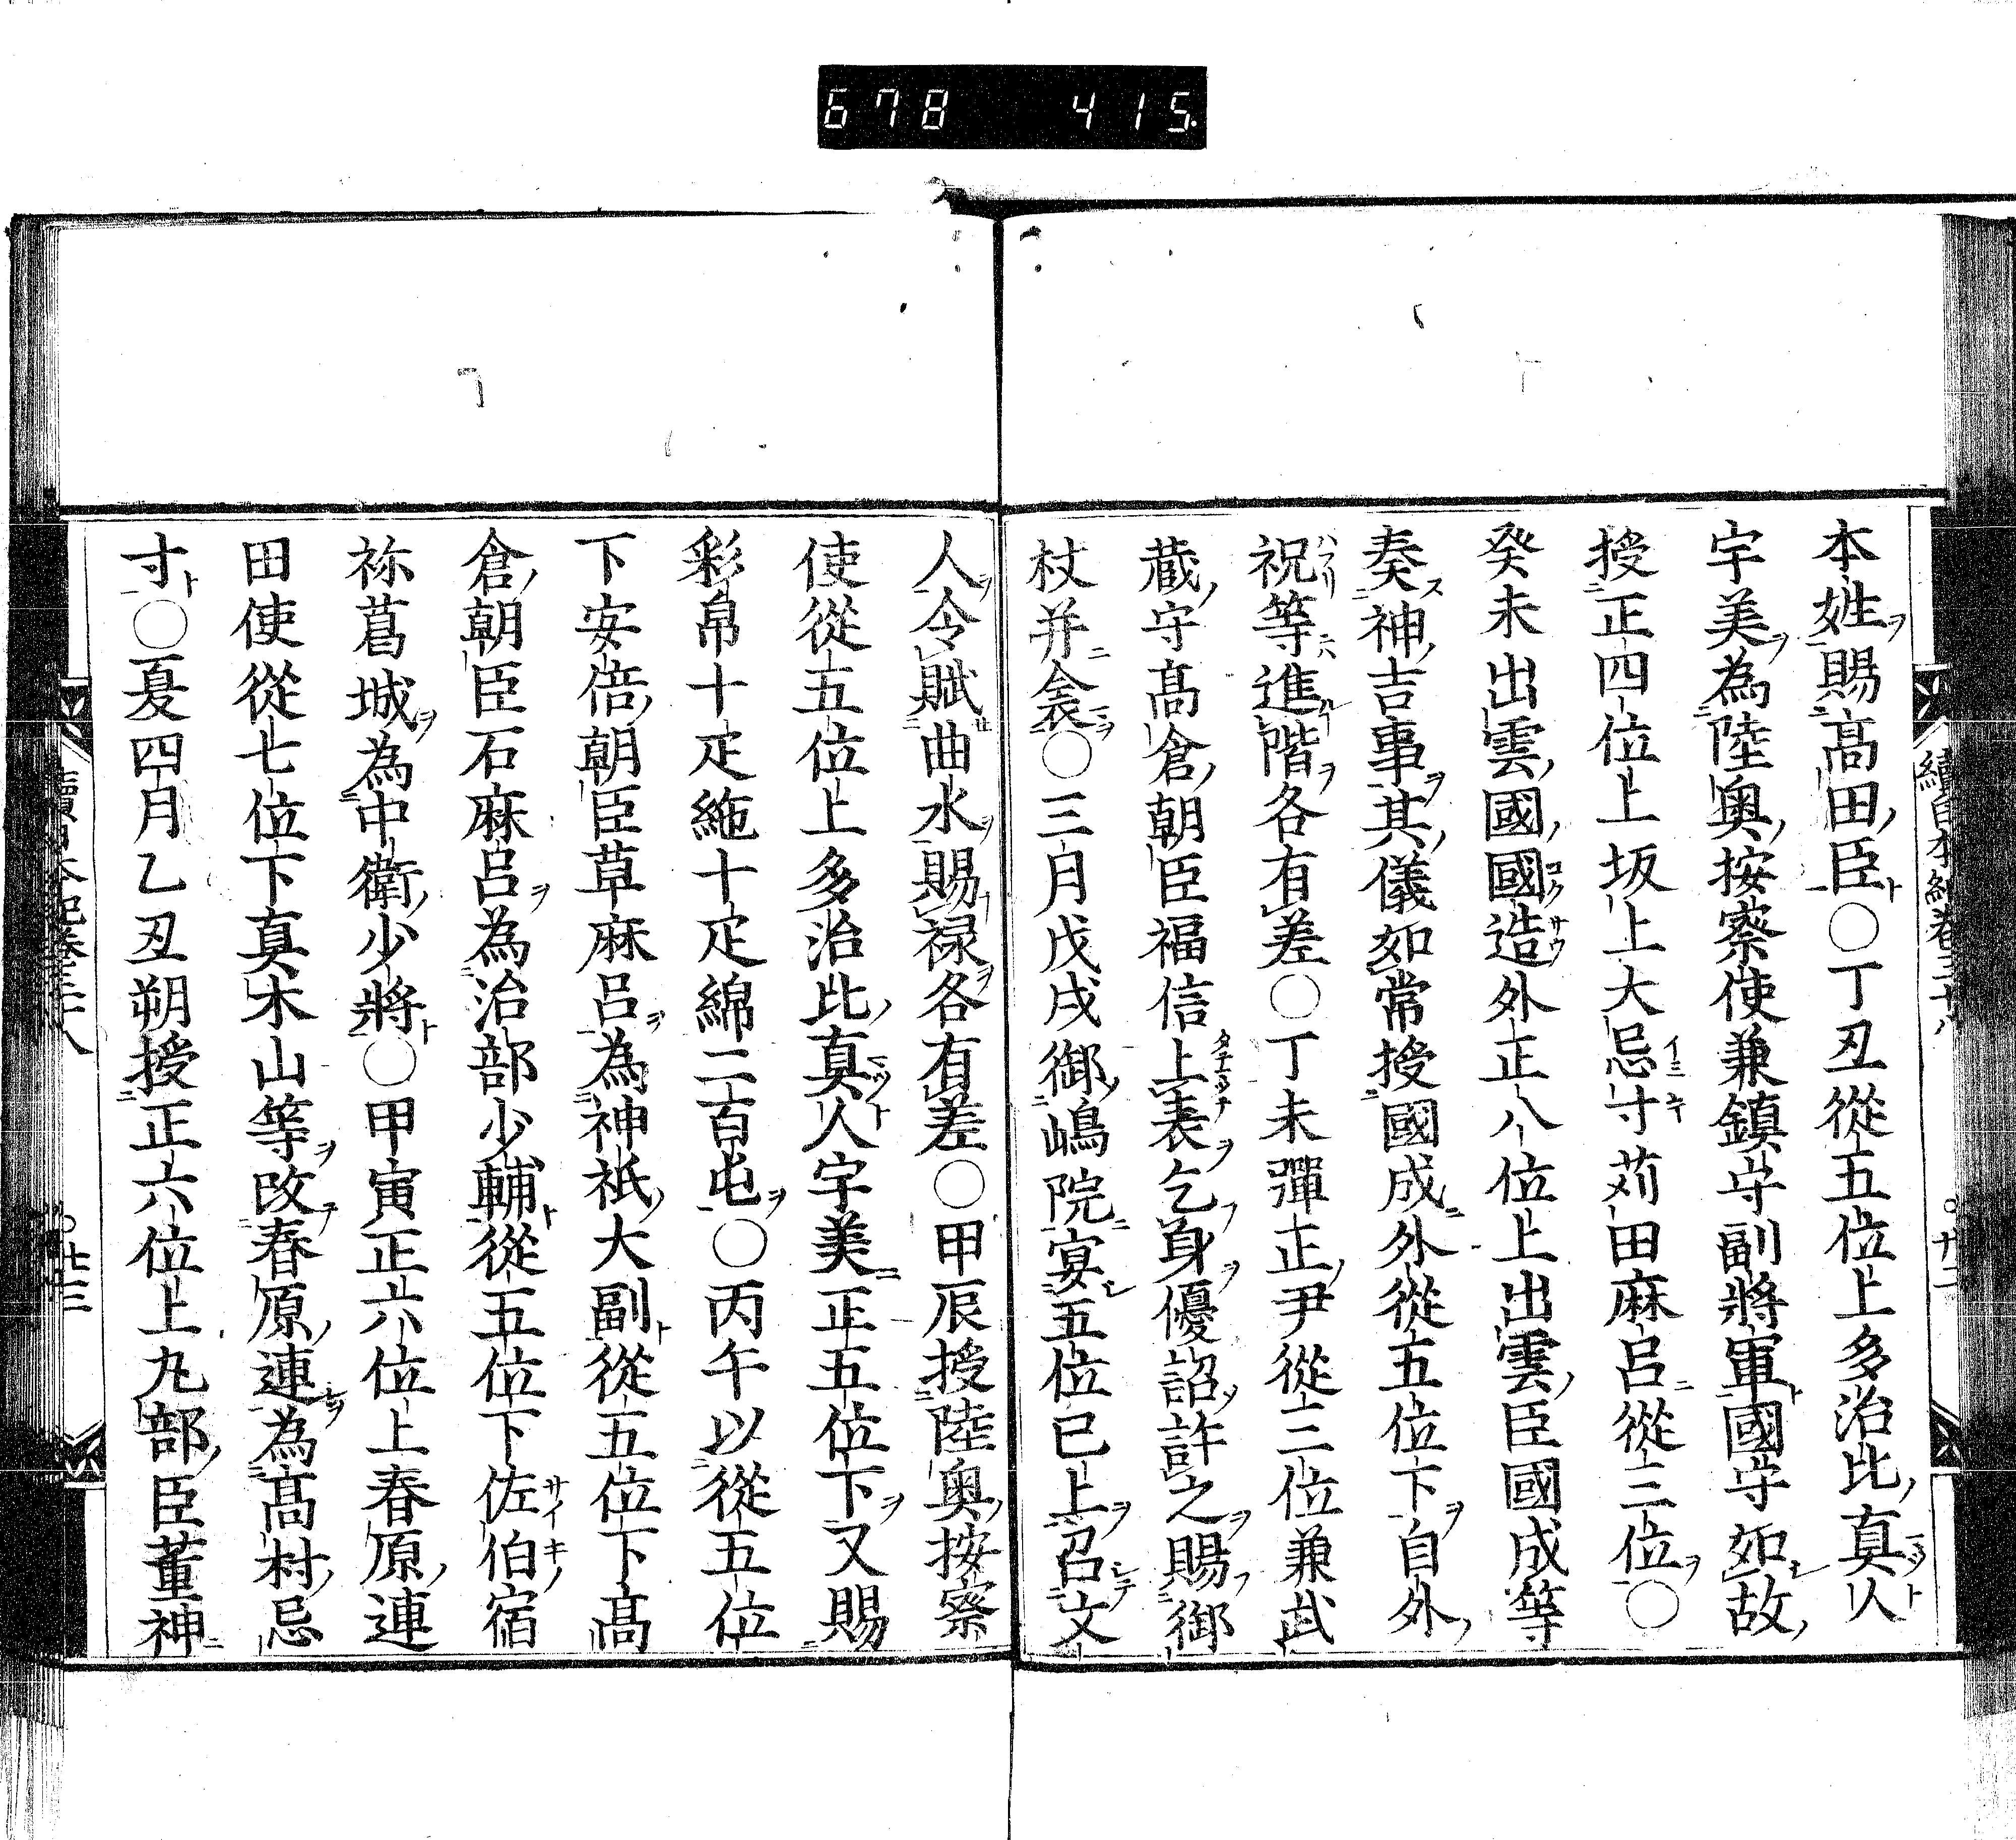 678 415
續日本紀卷三十八 ○廿二
本姓賜髙田臣○丁丑從五位上多治比真人
宇美為陸奧按察使兼鎮守副將軍國守如故
授正四位上坂上大忌寸苅田麻呂從三位○
癸未出雲國國造外正八位上出雲臣國成等
奏神吉事其儀如常授國成外從五位下自外
祝等進階各有差○丁未彈正尹從三位兼武
蔵守髙倉朝臣福信上表乞身優詔許之賜御
杖并衾○三月戊戌御嶋院宴五位已上召文
人令賦曲水賜禄各有差○甲辰授陸奧按察
使從五位上多治比真人宇美正五位下又賜
彩帛十疋絁十疋綿二百屯○丙午以從五位
下安倍朝臣草麻呂為神祇大副從五位下髙
倉朝臣石麻呂為治部少輔從五位下佐伯宿
祢葛城為中衛少將○甲寅正六位上春原連
田使從七位下真木山等改春原連為髙村忌
寸○夏四月乙丑朔授正六位上丸部臣董神
續日本紀卷三十八 ○廿三